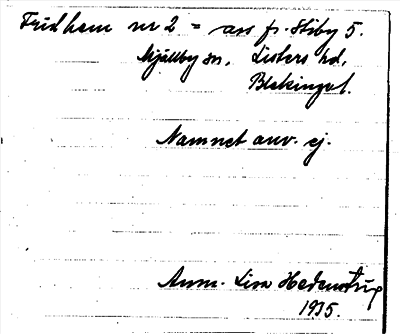 Fridhem nr 2 = avs fr. Stiby 5.
Mjällby sn. Listers hd.
Blekinge l.
Namnet anv. ej.
Ann-Lisa Hedenstrug
1935.